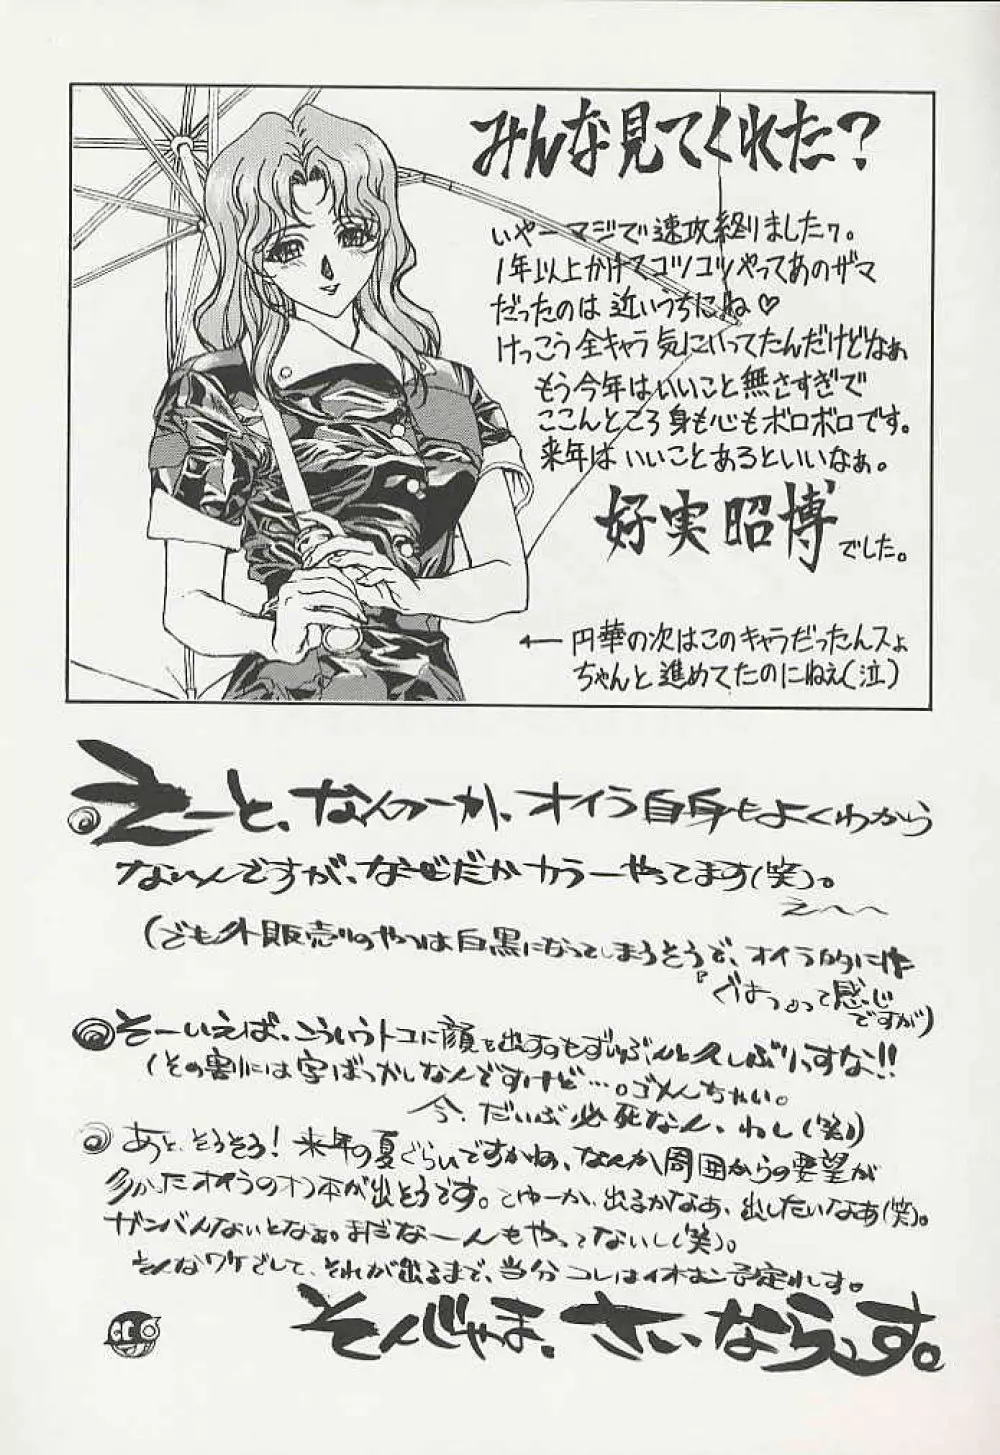 みんな見てくれた?
いやーマジで速攻終りましたァ。
1年以上かけてコツコツやってあのザマ
だったのは近いうちにね♡
けっこう全キャラ気にいってたんだけどなぁ
もう今年はいいこと無さすぎで
ここんところ身も心もボロボロです。
来年はいいことあるといいなぁ。
好実昭博でした。
←円華の次はこのキャラだったんスよ
ちゃんと進めてたのにねぇ(泣)
えーと、なんつーか、オイラ自身もよくわから
ないんですが、なぜだかカラーやってます(笑)。
えへへ
(でも外販売りのやつは白黒になってしまうそうで、オイラ的には
『ぐはっ』って感じ
ですが)
そーいえば、こういうトコに顔を出すのもずいぶんと久しぶりっすな!!
(その割には字ばっかしなんですけど…。ゴメんちゃい。
今、だいぶ必死なん、わし(笑))
あと、そろそろ!来年の夏ぐらいですかね、なんか周囲からの要望が
多かったオイラのオフ本が出そうです。とゆーか、出るかなあ、出したいなあ(笑)。
ガンバんないとなぁ。まだなーんもやってないし(笑)。
そんなワケでして、それが出るまで、当分コレは
そんじゃま、さいならっす。